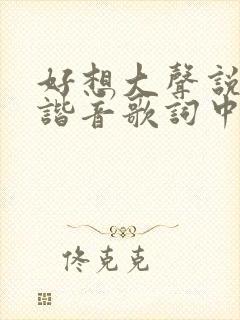 好想大聲說
諧音歌詞中
佟克克